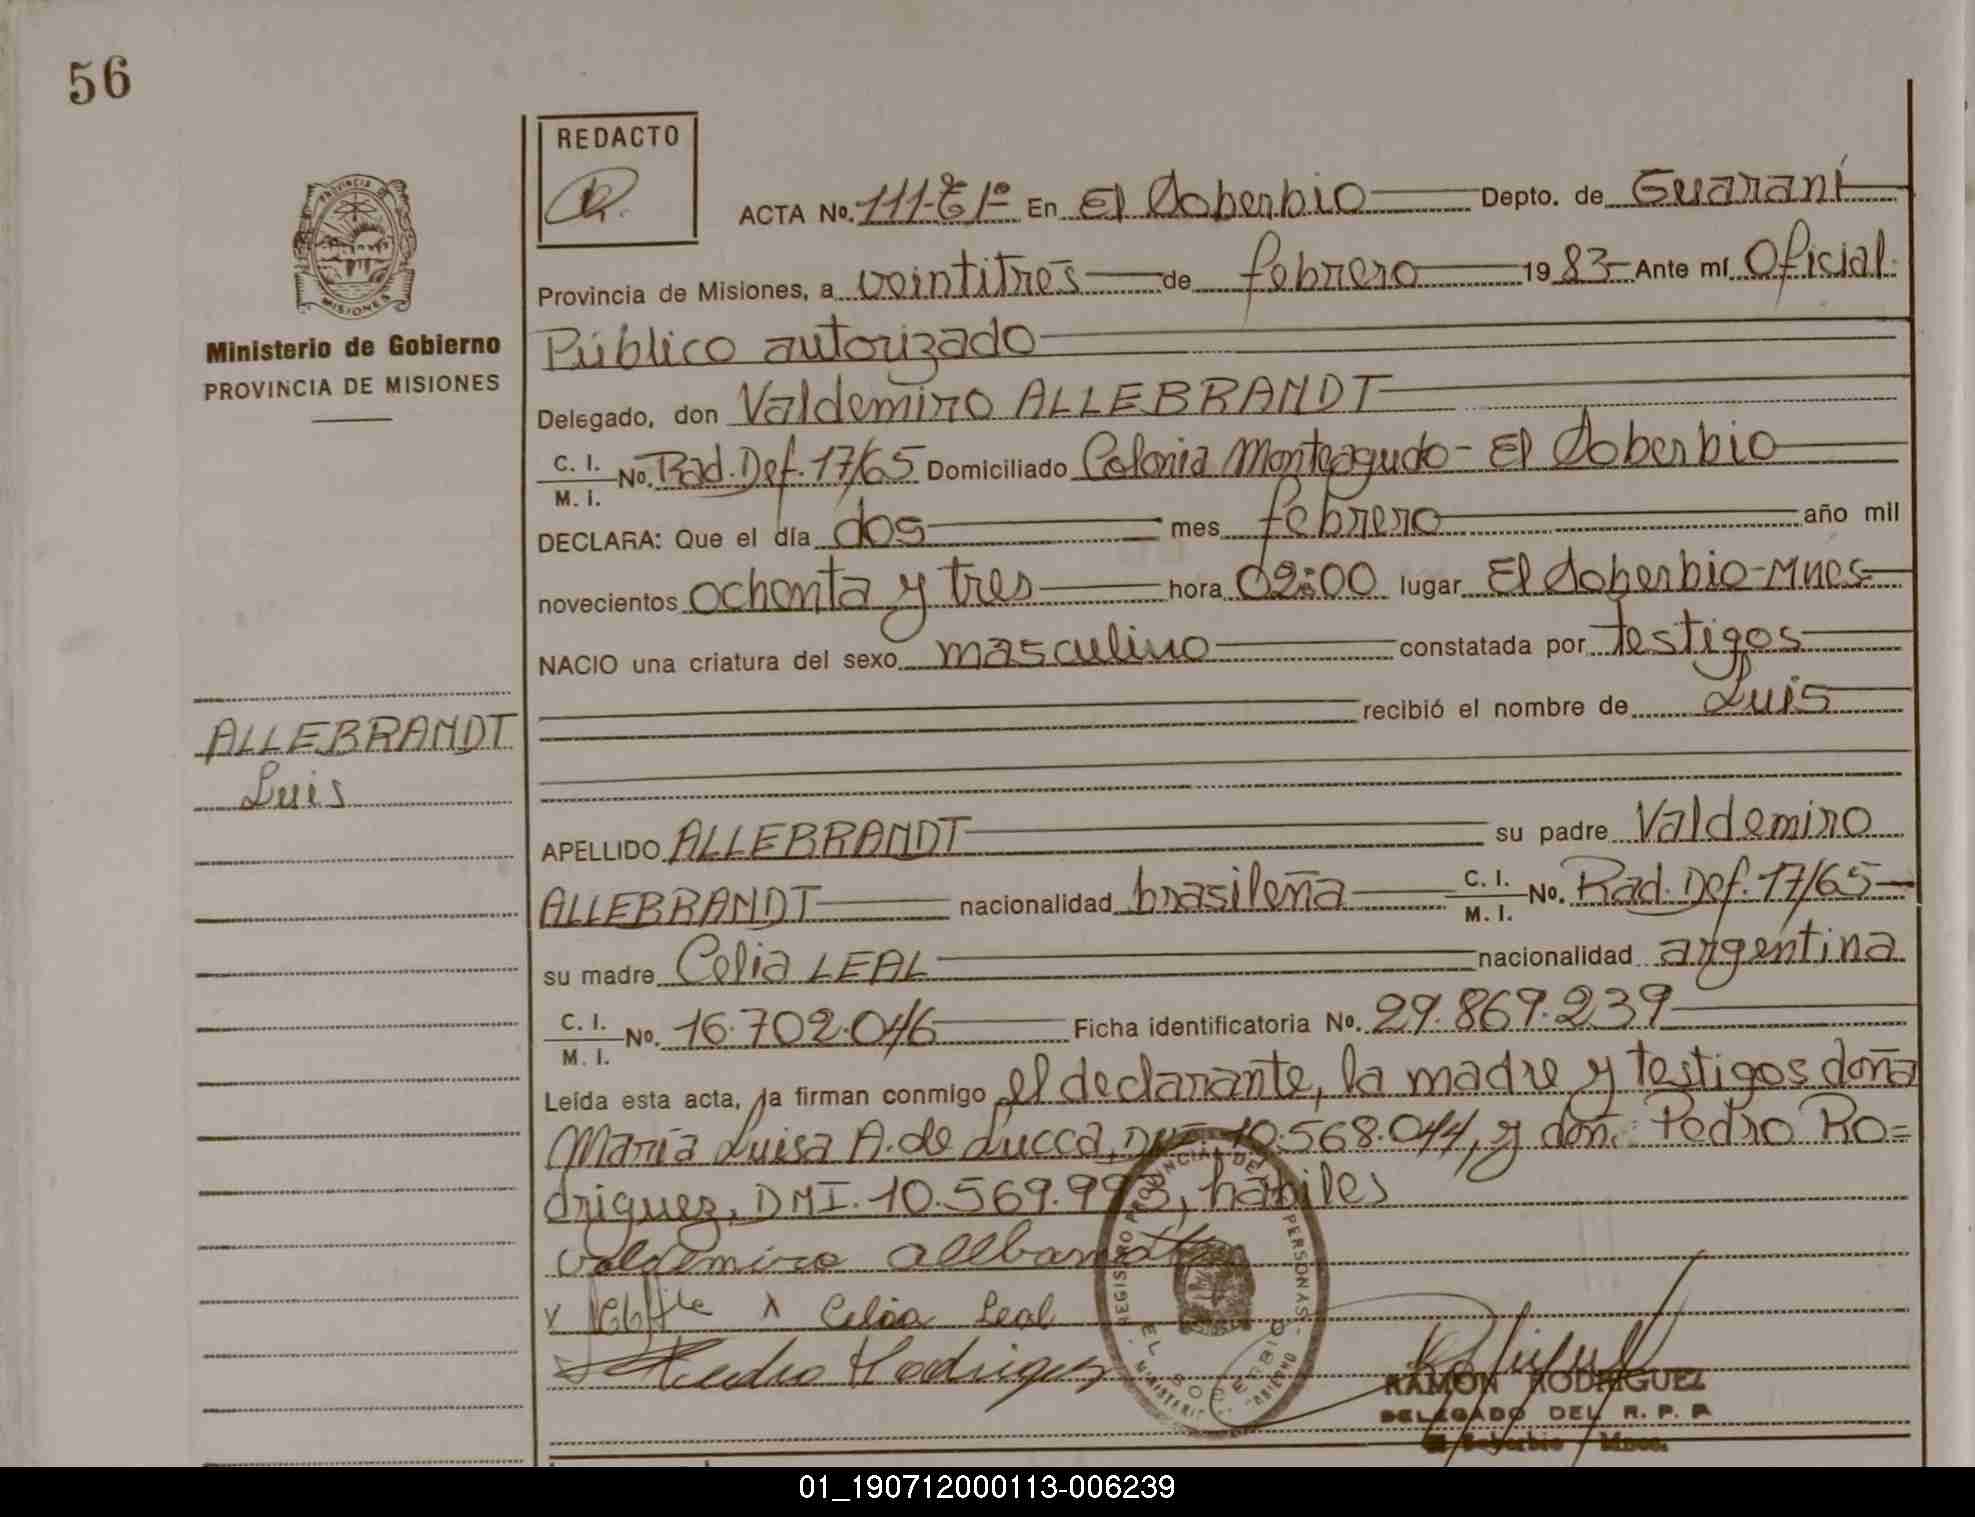 56
REDACTO
ACTA No. 111-T1º En El Soberbio Depto. de Guaraní
Provincia de Misiones, a veintitrés de febrero 1983 Ante mí Oficial
Público autorizado
Ministerio de Gobierno
PROVINCIA DE MISIONES
Delegado, don Valdemiro ALLEBRANDT
C. I. / M. I. No. Rad. Def. 17/65 Domiciliado Colonia Monteagudo - El Soberbio
DECLARA: Que el día dos mes febrero año mil
novecientos ochenta y tres hora 02:00 lugar El Soberbio-Mnes
NACIO una criatura del sexo masculino constatada por testigos
recibió el nombre de Luis
ALLEBRANDT
Luis
APELLIDO ALLEBRANDT su padre Valdemiro
ALLEBRANDT nacionalidad brasileña C. I. / M. I. No. Rad. Def. 17/65
su madre Celia LEAL nacionalidad argentina
C. I. / M. I. No. 16.702.046 Ficha identificatoria No. 29.869.239
Leída esta acta, la firman conmigo el declarante, la madre y testigos doña
María Luisa A. de Lucca, 10.568.044, y don Pedro Ro=
driguez, DMI. 10.569.993, hábiles
Valdemiro
x Celia Leal
Pedro Rodriguez
REGISTRO PROVINCIAL DE PERSONAS
EL SOBERBIO
RAMON RODRIGUEZ
DELEGADO DEL R. P. P.
El Soberbio Mnes.
01_190712000113-006239